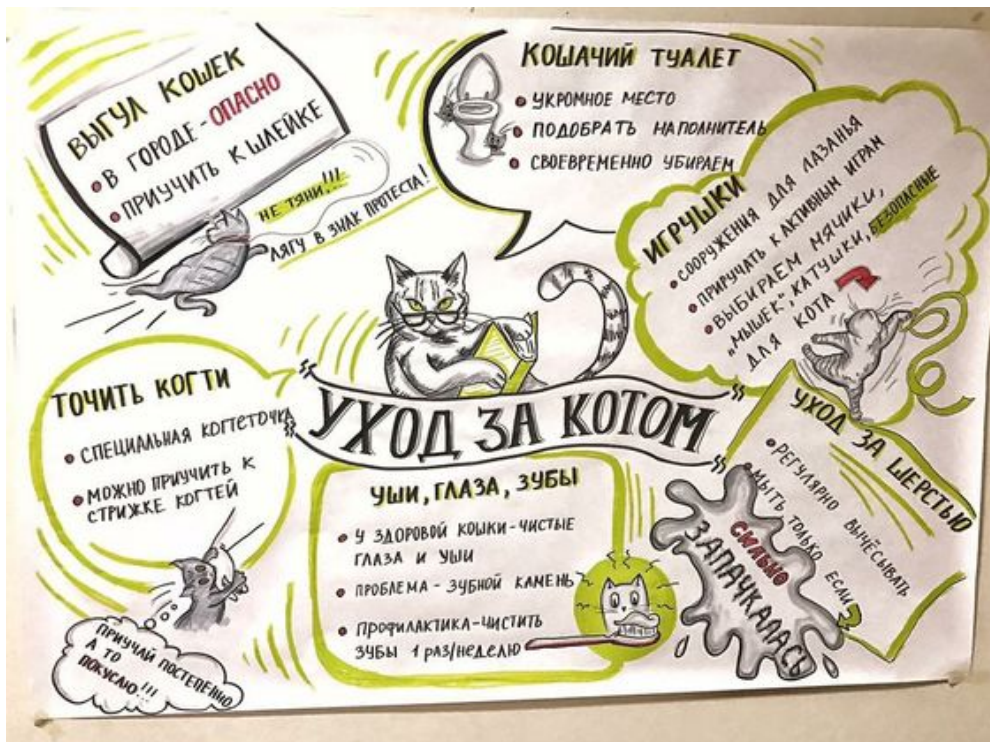 ВЫГУЛ КОШЕК
• В ГОРОДЕ - ОПАСНО
• ПРИУЧИТЬ К ШЛЕЙКЕ
НЕ ТЯНИ!!!
ЛЯГУ В ЗНАК ПРОТЕСТА!
КОШАЧИЙ ТУАЛЕТ
• УКРОМНОЕ МЕСТО
• ПОДОБРАТЬ НАПОЛНИТЕЛЬ
• СВОЕВРЕМЕННО УБИРАЕМ
ИГРУШКИ
• СООРУЖЕНИЯ ДЛЯ ЛАЗАНЬЯ
• ПРИРУЧАТЬ К АКТИВНЫМ ИГРАМ
• ВЫБИРАЕМ МЯЧИКИ,
„МЫШЕК", КАТУШКИ, БЕЗОПАСНЫЕ
ДЛЯ КОТА
УХОД ЗА КОТОМ
ТОЧИТЬ КОГТИ
• СПЕЦИАЛЬНАЯ КОГТЕТОЧКА
• МОЖНО ПРИУЧИТЬ К
СТРИЖКЕ КОГТЕЙ
ПРИУЧАЙ ПОСТЕПЕННО
А ТО
ПОКУСАЮ...!!!
УШИ, ГЛАЗА, ЗУБЫ
• У ЗДОРОВОЙ КОШКИ - ЧИСТЫЕ
ГЛАЗА И УШИ
• ПРОБЛЕМА - ЗУБНОЙ КАМЕНЬ
• ПРОФИЛАКТИКА - ЧИСТИТЬ
ЗУБЫ 1 РАЗ/НЕДЕЛЮ
УХОД ЗА ШЕРСТЬЮ
• РЕГУЛЯРНО ВЫЧЁСЫВАТЬ
• МЫТЬ ТОЛЬКО ЕСЛИ
СИЛЬНО
ЗАПАЧКАЛАСЬ